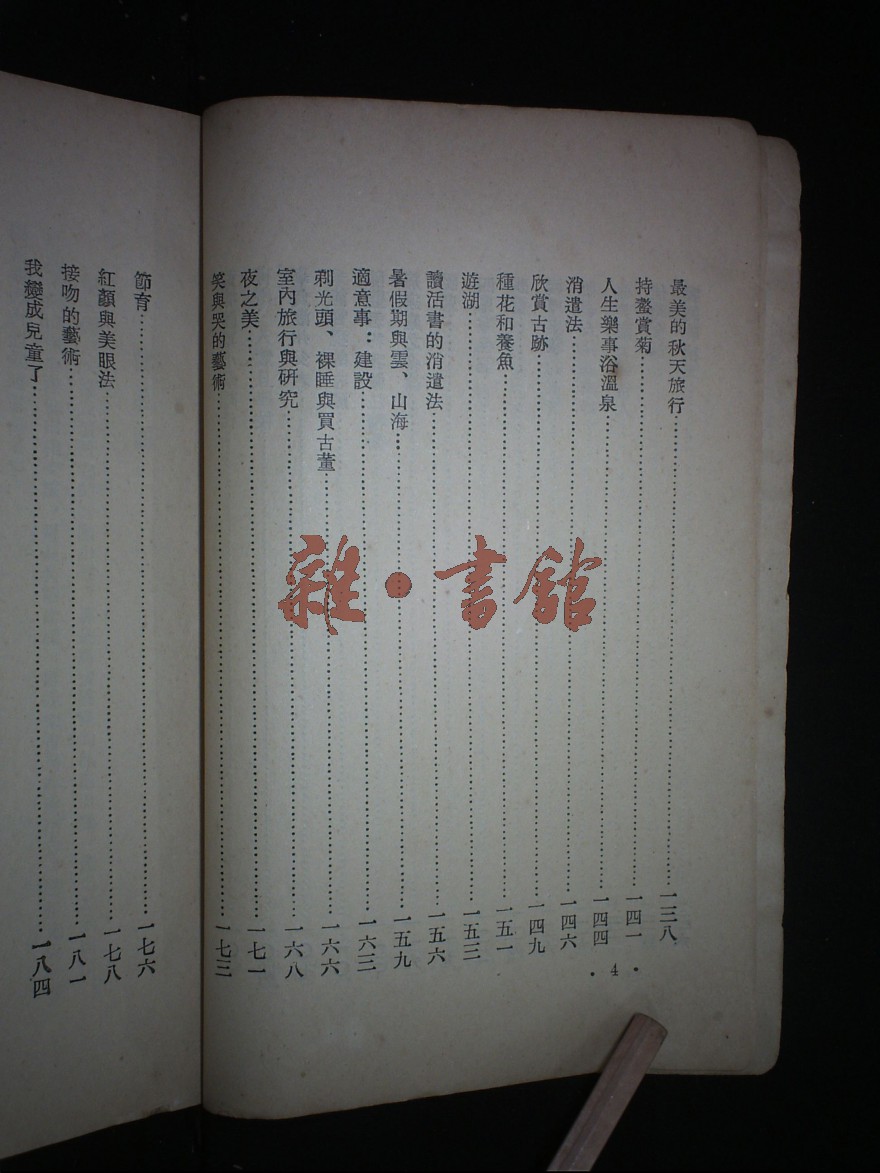 最美的秋天旅行……一三八
持螯賞菊……一四一
人生樂事浴溫泉……一四四
消遣法……一四六
欣賞古跡……一四九
種花和養魚……一五一
遊湖……一五三
讀活書的消遣法……一五六
暑假期與雲、山海……一五九
適意事：建設……一六三
剃光頭、裸睡與買古董……一六六
室內旅行與研究……一六八
夜之美……一七一
笑與哭的藝術……一七三
·4·
節育……一七六
紅顏與美眼法……一七八
接吻的藝術……一八一
我變成兒童了……一八四
雜·書館